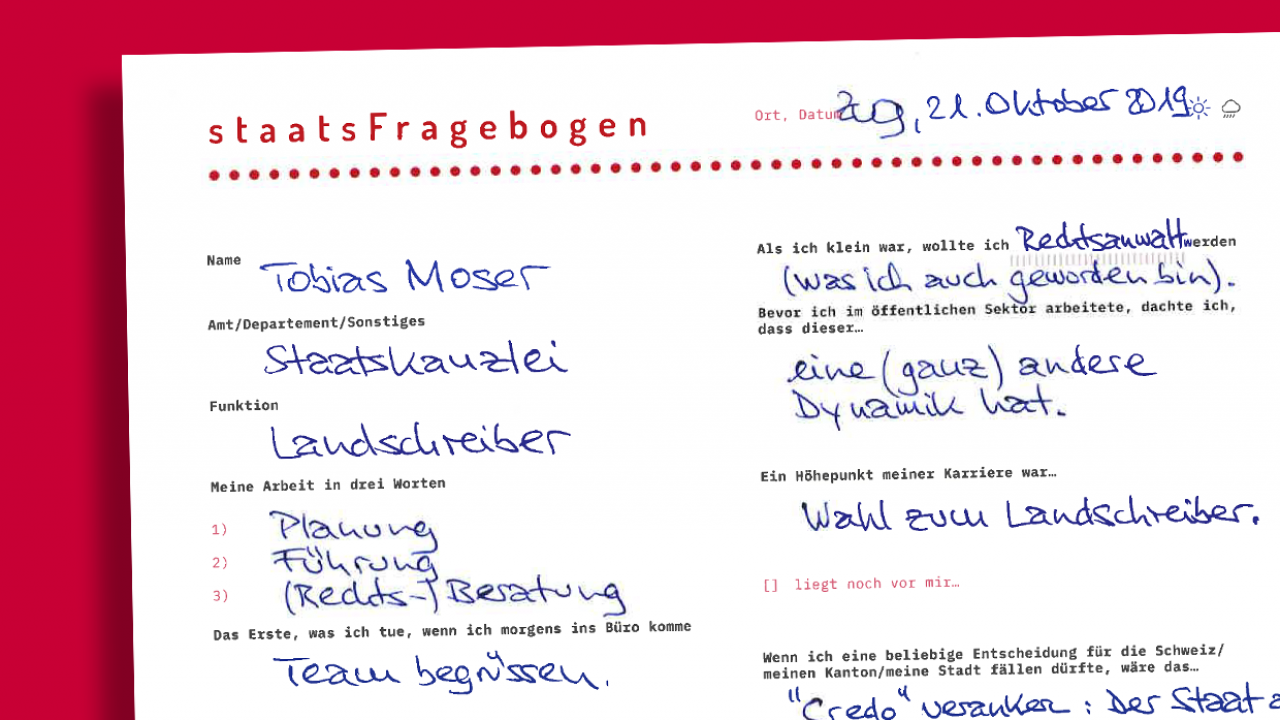 staatsFragebogen
Ort, Datum Zug, 21. Oktober 2019
Name
Tobias Moser
Amt/Departement/Sonstiges
Staatskanzlei
Funktion
Landschreiber
Meine Arbeit in drei Worten
1) Planung
2) Führung
3) (Rechts-) Beratung
Das Erste, was ich tue, wenn ich morgens ins Büro komme
Team begrüssen.
Als ich klein war, wollte ich Rechtsanwalt werden
(was ich auch geworden bin).
Bevor ich im öffentlichen Sektor arbeitete, dachte ich,
dass dieser…
eine (ganz) andere
Dynamik hat.
Ein Höhepunkt meiner Karriere war…
Wahl zum Landschreiber.
[] liegt noch vor mir…
Wenn ich eine beliebige Entscheidung für die Schweiz/
meinen Kanton/meine Stadt fällen dürfte, wäre das…
"Credo" veranker : Der Staat